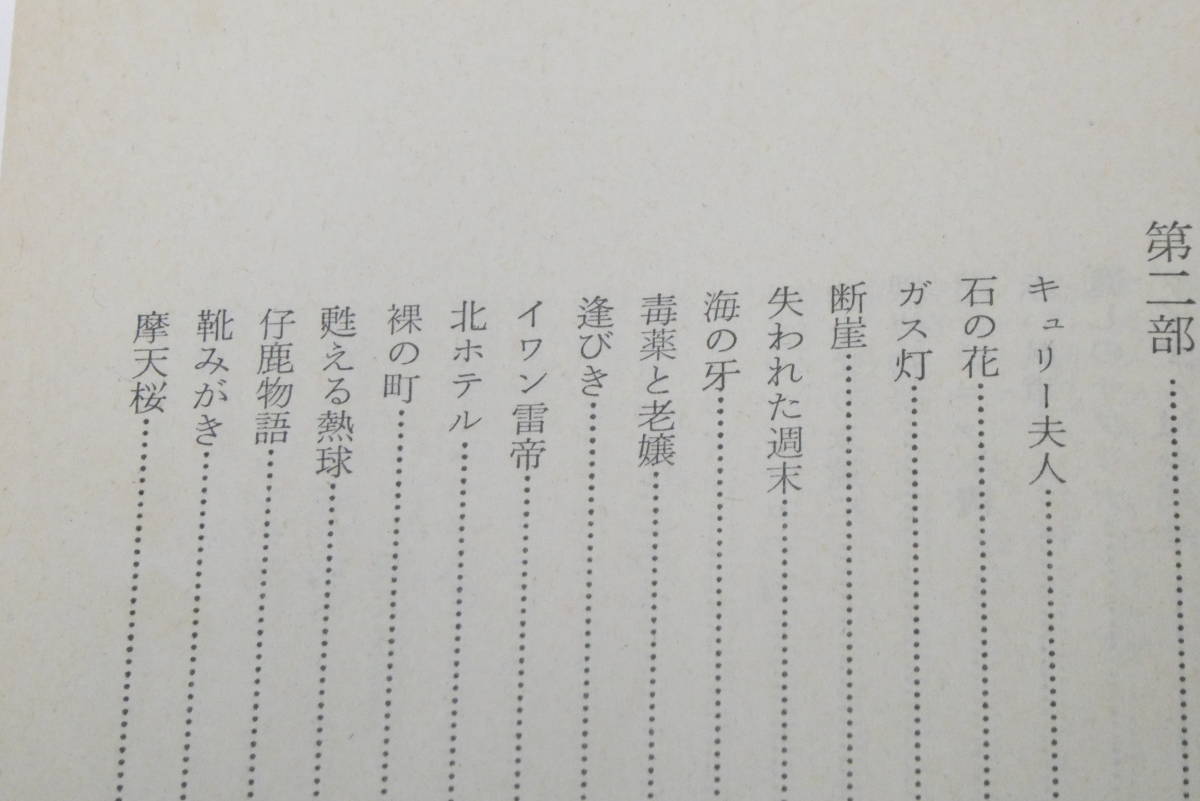 第二部
キュリー夫人
石の花
ガス灯
断崖
失われた週末
海の牙
毒薬と老嬢
逢びき
イワン雷帝
北ホテル
裸の町
甦える熱球
仔鹿物語
靴みがき
摩天桜